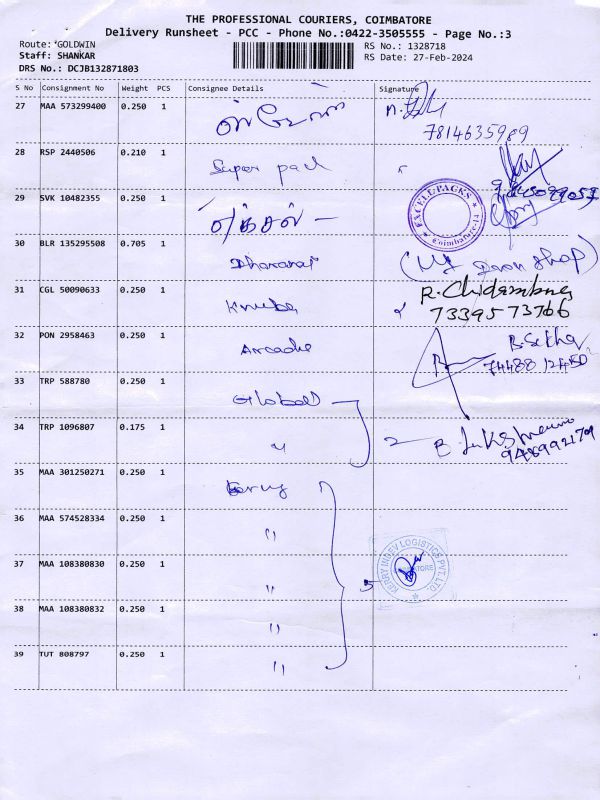 THE PROFESSIONAL COURIERS, COIMBATORE
Delivery Runsheet - PCC - Phone No.:0422-3505555 - Page No.:3
Route: GOLDWIN
RS No.: 1328718
Staff: SHANKAR
RS Date: 27-Feb-2024
DRS No.: DCJB132871803
S No Consignment No Weight PCS Consignee Details Signature
27 MAA 573299400 0.250 1
7814635989
28 RSP 2440506 0.210 1 Super pack
29 SVK 10482355 0.250 1
EXCELL PACKS
Coimbatore-14
30 BLR 135295508 0.705 1
31 CGL 50090633 0.250 1 R. Chidambaram
7339573766
32 PON 2958463 0.250 1 Arcadia
33 TRP 588780 0.250 1 Global
34 TRP 1096807 0.175 1 " 2
35 MAA 301250271 0.250 1
36 MAA 574528334 0.250 1 "
37 MAA 108380830 0.250 1 " 5
KERRY INDEV LOGISTICS PVT. LTD.
COIMBATORE
38 MAA 108380832 0.250 1 "
39 TUT 808797 0.250 1 "